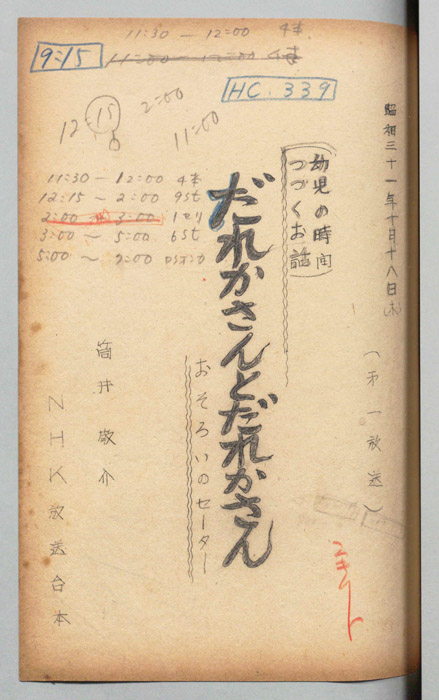 11:30 — 12:00 4本
9:15
11:00 — 12:00 4本
HC. 339
12:15
2:00
11:00
11:30 — 12:00 4本
12:15 〜 2:00 9st
2:00 〜 3:00 1セリ
3:00 〜 5:00 6st
5:00 〜 9:00
昭和三十一年十月十八日(木)
(第一放送)
(幼児の時間
つづくお話)
だれかさんとだれかさん
おそろいのセーター
筒井敬介
NHK放送台本